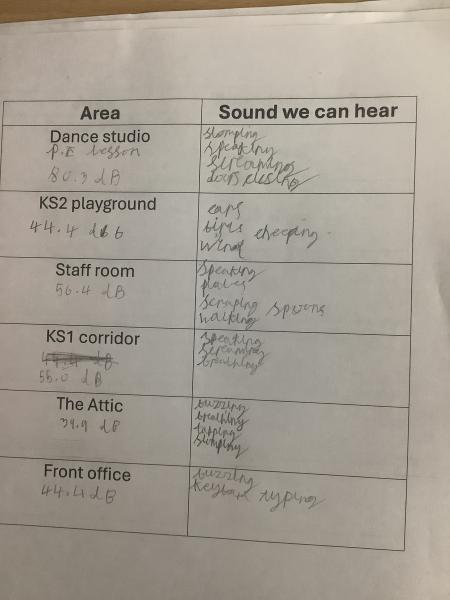 Area
Sound we can hear
Dance studio
P.E lesson
80.3 dB
stomping
speaking
screaming
KS2 playground
44.4 db
cars
birds cheeping
wind
Staff room
56.4 dB
speaking
plates
scraping spoons
walking
KS1 corridor
55.0 dB
speaking
screaming
breathing
The Attic
39.9 dB
buzzing
breathing
tapping
stomping
Front office
44.4 dB
buzzing
typing